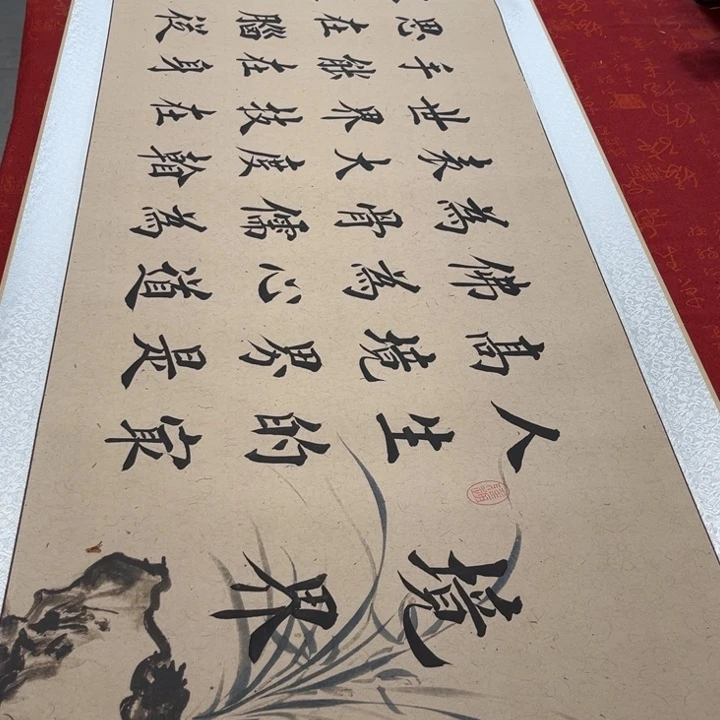 境界
人生的冣
高境界是
佛為心道
為骨儒為
表大度看
世界技在
手能在身
思在腦從